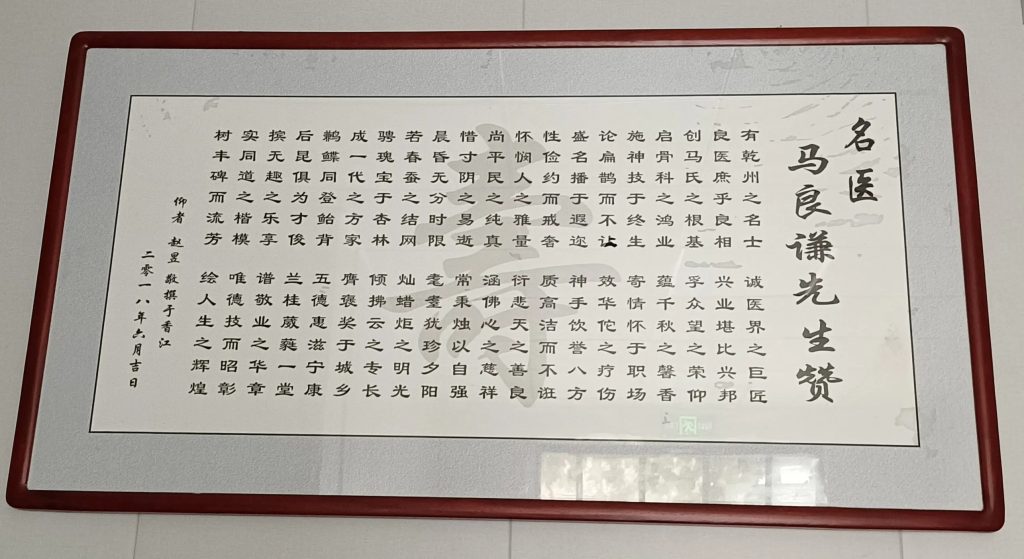 名医
马良谦先生赞
有乾州之名士 诚医界之巨匠
良医庶乎良相 兴业堪比兴邦
创马氏之根基 孚众望之荣仰
启骨科之鸿业 蕴千秋之馨香
施神技于终生 寄情怀于职场
论扁鹊而不让 效华佗之疗伤
盛名播于遐迩 神手饮誉八方
性俭约而戒奢 质高洁而不诳
怀悯人之雅量 衍悲天之善良
尚平民之纯真 涵佛心之慈祥
惜寸阴之易逝 常秉烛以自强
晨昏无分时限 耄耋犹珍夕阳
若春蚕之结网 灿蜡炬之明光
骋瑰宝于杏林 倾拂云之专长
成一代之方家 膺褒奖于城乡
鹣鲽同登鲐背 五德惠滋宁康
后昆俱为才俊 兰桂葳蕤一堂
摈无趣之乐享 谱敬业之华章
实同道之楷模 唯德技而昭彰
树丰碑而流芳 绘人生之辉煌
仰者 赵昱 敬撰于香江
二零一八年六月吉日
寿